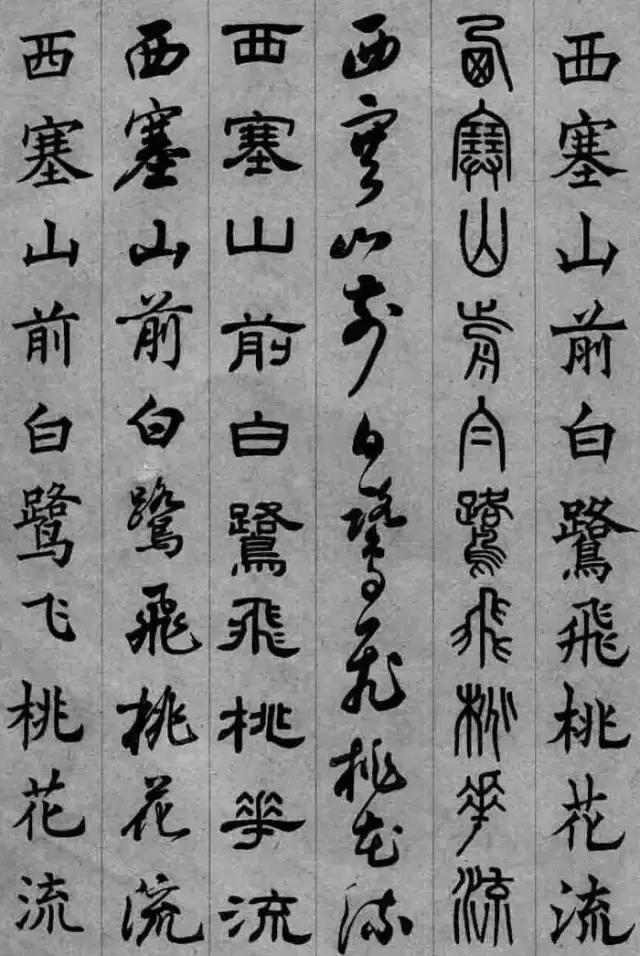 西塞山前白鷺飛桃花流
西塞山前白鷺飛桃華流
西塞山前白鷺飛桃花流
西塞山前白鷺飛桃華流
西塞山前白鷺飛桃花流
西塞山前白鹭飞桃花流